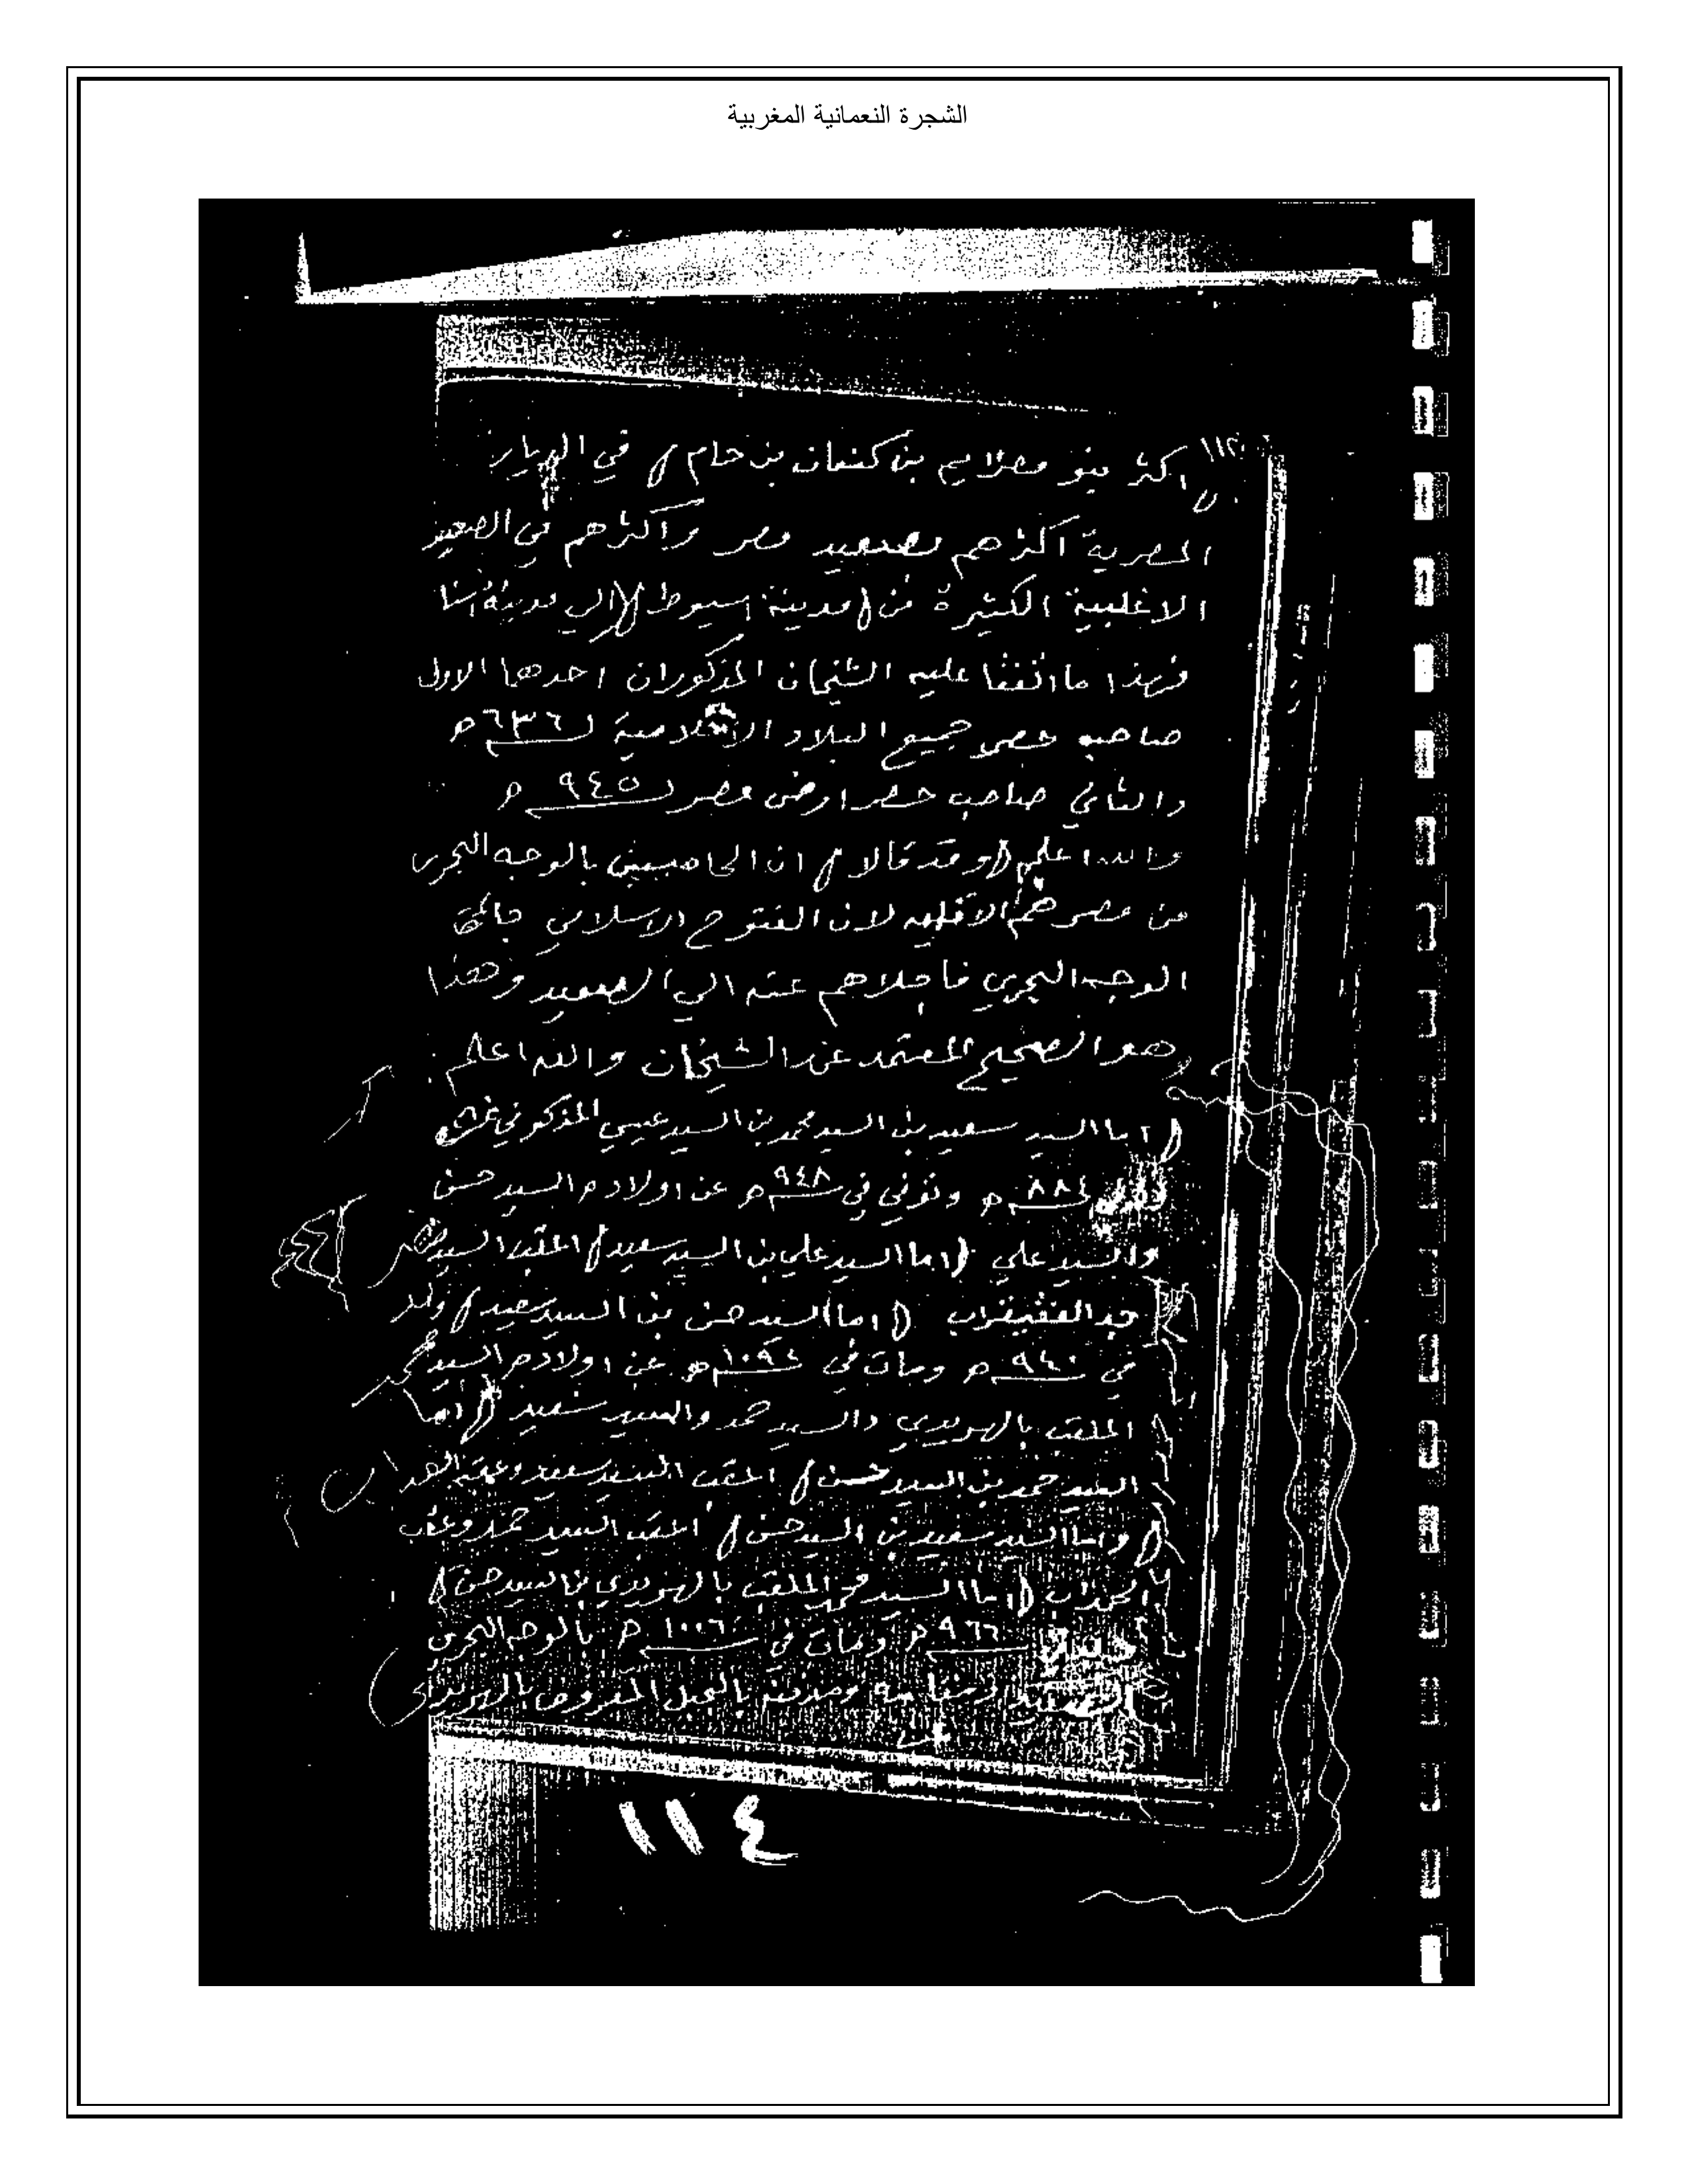 الشجرة النعمانية المغربية
١١٢
اكثر بنو مصلايم بن كنعان بن حام ) في الديار
المصرية اكثرهم بصعيد مصر واكثرهم في الصعيد
الاغلبية الكثيرة من ( مدينة اسيوط ) الي مدينة اسنا
فهذا ما اتفقا عليه الشيخان المذكوران احدهما الاول
صاحب حصر جميع البلاد الاسلامية ٦٣٦ ه
والثاني صاحب حصر ارض مصر ٩٤٥ ه
والله اعلم ( وقد قالا ) ان بالوجه البحري
من مصر هم الاقليه لان الفتوح الاسلامي
الوجه البحري فاجلاهم عنه الي الصعيد وهذا
وهو الصحيح المعتمد عند الشيخان والله اعلم
( اما السيد سعيد بن السيد محمد بن السيد عيسي
٨٨٤ ه وتوفي في ٩٤٨ ه عن اولاده السيد حسن
والسيد علي ( اما السيد علي بن السيد سعيد ) اعقب السيد
جد ( اما السيد حسن بن السيد سعيد ) ولد
في ٩٤٠ ه ومات في ١٠٩٤ ه عن اولاده السيد محمد
الملقب بالهريدي والسيد حمد والسيد سعيد ( اما
السيد حمد بن السيد حسن ) اعقب السيد سعيد وعقبه
( واما السيد سعيد بن السيد حسن ) اعقب السيد حمد وعقبه
( اما السيد محمد الملقب بالهريدي بن السيد حسن )
٩٦٦ ه ومات في ١٠٠٦ ه بالوجه البحري
بالجبل المعروف بالهريدي
١١٤